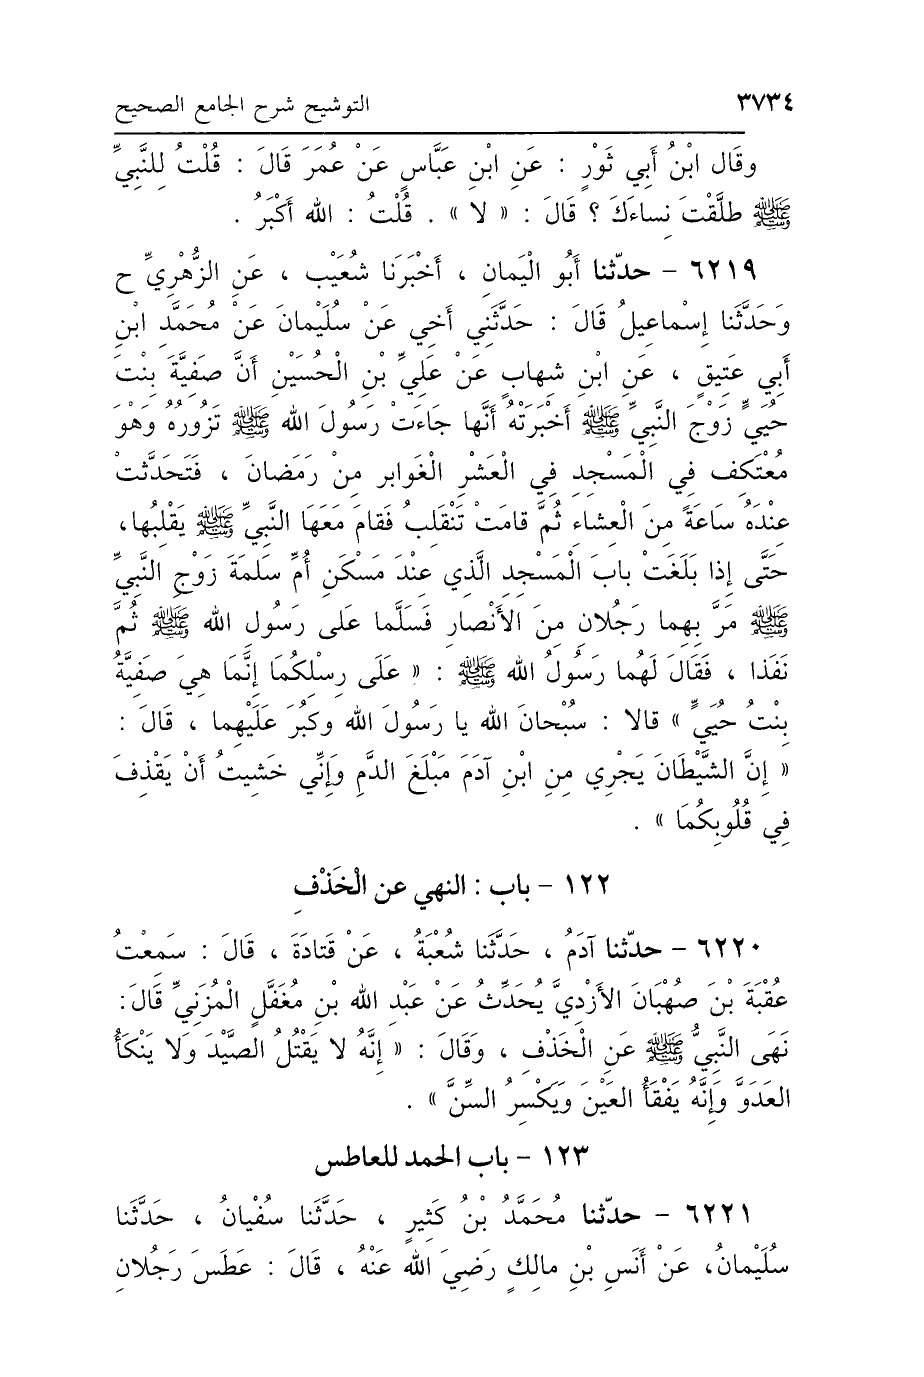 ٣٧٣٤ التوشيح شرح الجامع الصحيح
وقَال ابْنُ أَبي ثَوْرٍ : عَنِ ابْنِ عَبَّاسٍ عَنْ عُمَرَ قَالَ : قُلْتُ لِلنَّبِيِّ
ﷺ طلَّقْتَ نِساءَكَ ؟ قَالَ : « لا » . قُلْتُ : الله أَكْبَرُ .
٦٢١٩ - حدّثنا أَبُو الْيَمانِ ، أَخْبَرَنَا شُعَيْب ، عَنِ الزُّهْرِيِّ ح
وَحَدَّثَنا إِسْماعِيلُ قَالَ : حَدَّثَنِي أَخِي عَنْ سُلَيْمانَ عَنْ مُحَمَّدِ ابْنِ
أَبي عَتِيقٍ ، عَنِ ابْنِ شِهابٍ عَنْ عَلِيِّ بْنِ الْحُسَيْنِ أَنَّ صَفِيَّةَ بِنْتَ
حُيَيٍّ زَوْجَ النَّبِيِّ ﷺ أَخْبَرَتْهُ أَنَّها جَاءَتْ رَسُولَ الله ﷺ تَزُورُهُ وَهْوَ
مُعْتَكِف فِي الْمَسْجِدِ فِي الْعَشْرِ الْغَوابِرِ مِنْ رَمَضانَ ، فَتَحَدَّثَتْ
عِنْدَهُ سَاعَةً مِنَ الْعِشاءِ ثُمَّ قامَتْ تَنْقَلِبُ فَقامَ مَعَهَا النَّبِيِّ ﷺ يَقْلِبُها،
حَتَّى إِذا بَلَغَتْ بابَ الْمَسْجِدِ الَّذِي عِنْدَ مَسْكَنِ أُمِّ سَلَمَةَ زَوْجِ النَّبِيِّ
ﷺ مَرَّ بِهِما رَجُلانِ مِنَ الأَنْصارِ فَسَلَّما عَلى رَسُولِ الله ﷺ ثُمَّ
نَفَذا ، فَقَالَ لَهُما رَسُولُ الله ﷺ : « عَلَى رِسْلِكُمَا إِنَّمَا هِيَ صَفِيَّةُ
بِنْتُ حُيَيٍّ » قالا : سُبْحانَ الله يا رَسُولَ الله وكَبُرَ عَلَيْهِما ، قَالَ :
« إِنَّ الشَّيْطَانَ يَجْرِي مِنِ ابْنِ آدَمَ مَبْلَغَ الدَّمِ وَإِنِّي خَشِيتُ أَنْ يَقْذِفَ
فِي قُلُوبِكُمَا » .
١٢٢ - باب : النهي عن الْخَذْفِ
٦٢٢٠ - حدّثنا آدَمُ ، حَدَّثَنا شُعْبَةُ ، عَنْ قَتادَةَ ، قَالَ : سَمِعْتُ
عُقْبَةَ بْنَ صُهْبَانَ الأَزْدِيَّ يُحَدِّثُ عَنْ عَبْدِ الله بْنِ مُغَفَّلٍ الْمُزَنِيِّ قَالَ:
نَهَى النَّبِيُّ ﷺ عَنِ الْخَذْفِ ، وَقَالَ : « إِنَّهُ لا يَقْتُلُ الصَّيْدَ وَلا يَنْكَأُ
العَدَوَّ وَإِنَّهُ يَفْقَأُ العَيْنَ وَيَكْسِرُ السِّنَّ » .
١٢٣ - باب الحمد للعاطس
٦٢٢١ - حدّثنا مُحَمَّدُ بْنُ كَثِيرٍ ، حَدَّثَنا سُفْيانُ ، حَدَّثَنا
سُلَيْمانُ، عَنْ أَنَسِ بْنِ مالِكٍ رَضِيَ الله عَنْهُ ، قَالَ : عَطَسَ رَجُلانِ